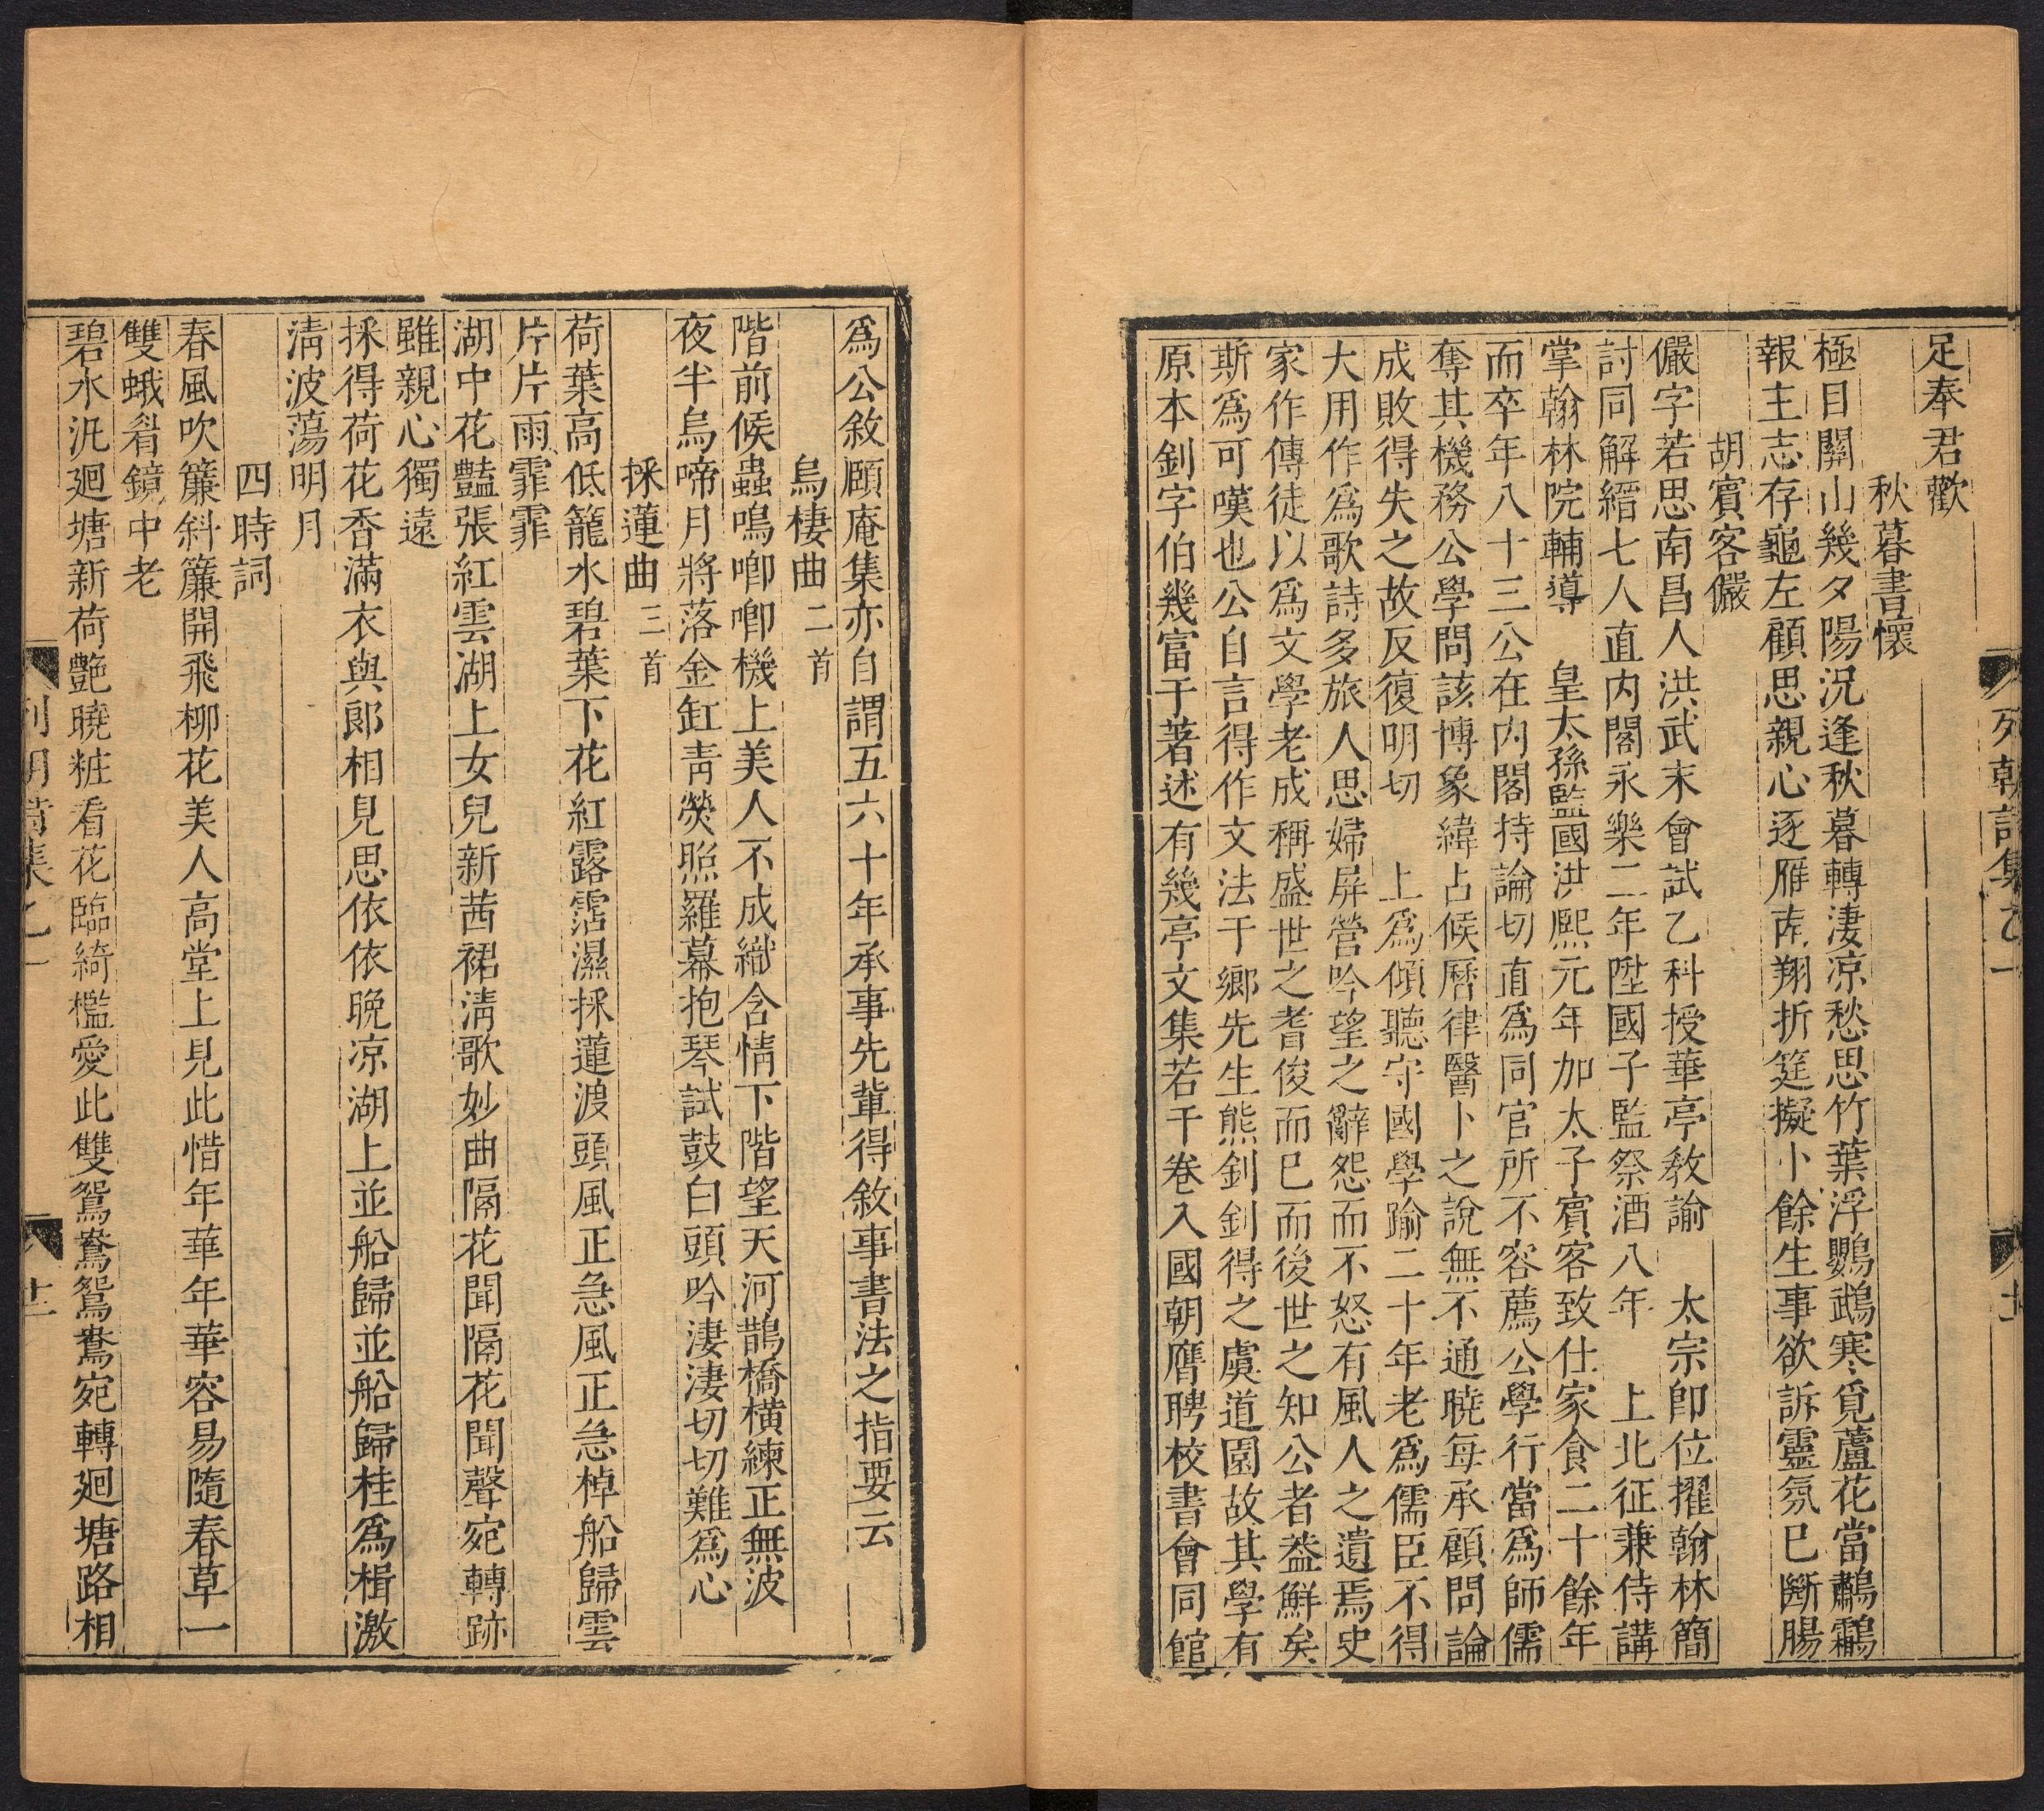 足奉君歡
秋暮書懷
極目關山幾夕陽況逢秋暮轉淒凉愁思竹葉浮鸚鵡寒覓蘆花當鷫鸘
報主志存龜左顧思親心逐雁南翔折筳擬卜餘生事欲訴靈氛已斷腸
胡賓客儼
儼字若思南昌人洪武末會試乙科授華亭教諭　太宗卽位擢翰林簡
討同解縉七人直內閣永樂二年陞國子監祭酒八年　上北征兼侍講
掌翰林院輔導　皇太孫監國洪熙元年加太子賓客致仕家食二十餘年
而卒年八十三公在內閣持論切直爲同官所不容薦公學行當爲師儒
奪其機務公學問該博象緯占候曆律醫卜之說無不通曉每承顧問論
成敗得失之故反復明切　上爲傾聽守國學踰二十年老爲儒臣不得
大用作爲歌詩多旅人思婦屛營吟望之辭怨而不怒有風人之遺焉史
家作傳徒以爲文學老成稱盛世之耆俊而已而後世之知公者益鮮矣
斯爲可嘆也公自言得作文法于鄉先生熊釗釗得之虞道園故其學有
原本釗字伯幾富于著述有幾亭文集若干卷入國朝膺聘校書會同館
爲公敘頤庵集亦自謂五六十年承事先輩得敘事書法之指要云
烏棲曲二首
階前候蟲鳴喞喞機上美人不成織含情下階望天河鵲橋橫練正無波
夜半烏啼月將落金缸靑熒照羅幕抱琴試鼓白頭吟淒淒切切難爲心
採蓮曲三首
荷葉高低籠水碧葉下花紅露霑濕採蓮渡頭風正急風正急棹船歸雲
片片雨霏霏
湖中花豔張紅雲湖上女兒新茜裙淸歌妙曲隔花聞隔花聞聲宛轉跡
雖親心獨遠
採得荷花香滿衣與郎相見思依依晚凉湖上並船歸並船歸桂爲楫激
淸波蕩明月
四時詞
春風吹簾斜簾開飛柳花美人高堂上見此惜年華年華容易隨春草一
雙蛾眉鏡中老
碧水汎廻塘新荷艷曉粧看花臨綺檻愛此雙鴛鴦鴛鴦宛轉廻塘路相